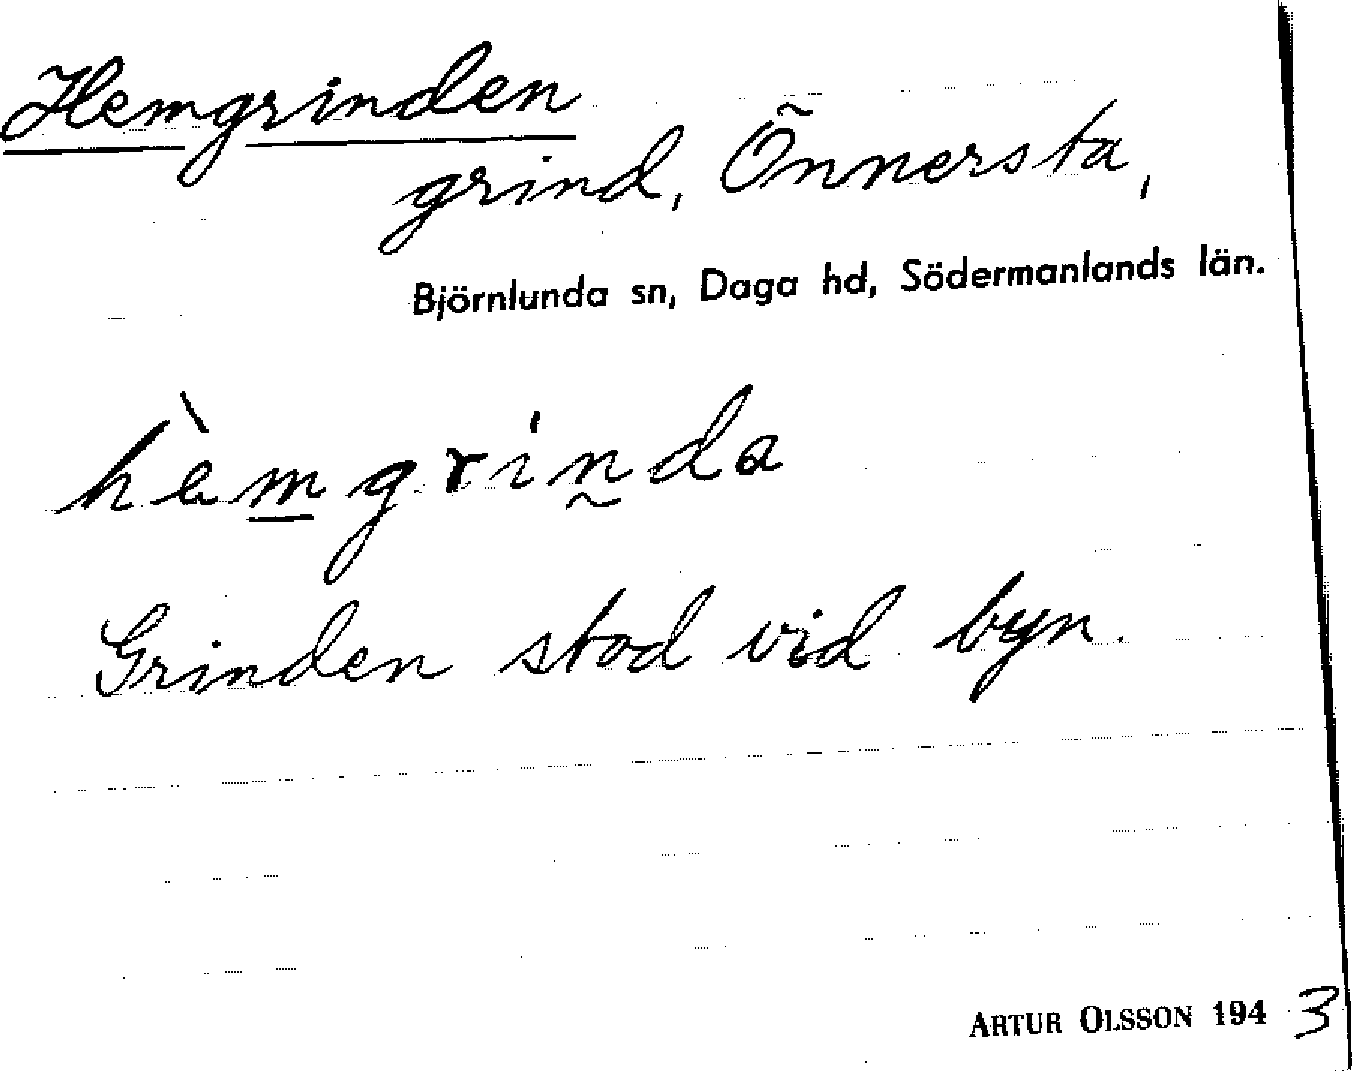 Hemgrinden
grind, Önnersta,
Björnlunda sn, Daga hd, Södermanlands län.
hèmgrinda
Grinden stod vid byn.
ARTUR OLSSON 1943